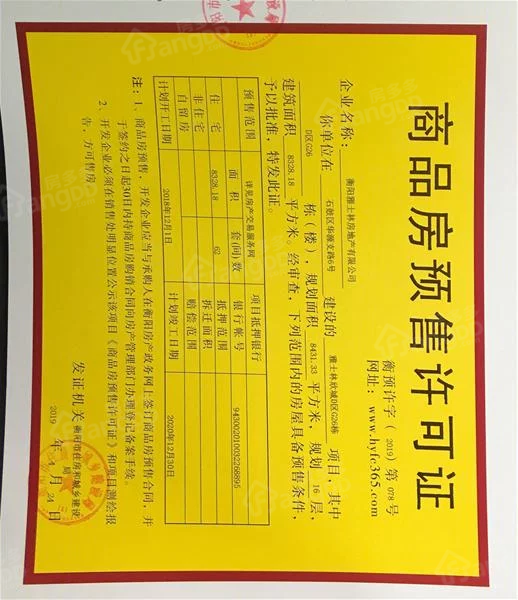 商品房预售许可证
衡预许字(2019)第078号
网址:www.hyfc365.com
企业名称:衡阳雅士林房地产有限公司
你单位在 石鼓区华源支路6号 建设的 雅士林欣城D区G26栋 项目,其中
D区G26 栋(楼),规划面积 8431.33 平方米,规划 16 层,
建筑面积 8328.18 平方米。经审查,下列范围内的房屋具备预售条件,
予以批准,特发此证。
预售范围 详见房产交易服务网 项目抵押银行
面积 套(间)数 银行帐号 943002010032268895
住宅 8328.18 62 抵押范围
非住宅 拆迁面积
自留房 赔偿范围
计划开工日期 2018年12月1日 计划竣工日期 2020年12月30日
注:1、商品房预售,开发企业应当与承购人在衡阳房产政务网上签订商品房预售合同,并
于签约之日起30日内持商品房购销合同向房产管理部门办理登记备案手续。
2、开发企业必须在销售处明显位置公示该项目《商品房预售许可证》和项目测绘报
告,方可售房。
发证机关 衡阳市住房和城乡建设局
2019年4月24日
房多多
Fangdd